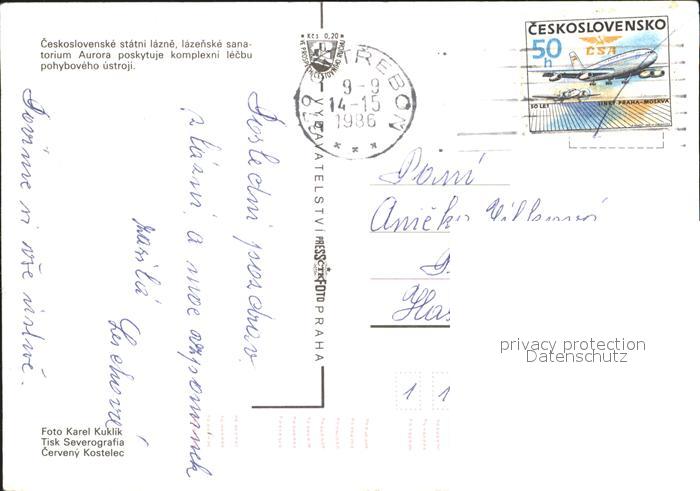 Československé státní lázně, lázeňské sana-
torium Aurora poskytuje komplexní léčbu
pohybového ústrojí.
Poslední pozdrav
z lázní a moc vzpomínek
zasílá
Povíme si vše ústně.
Foto Karel Kuklík
Tisk Severografia
Červený Kostelec
Kčs 0,20
VYDAVATELSTVÍ PRESSFOTO PRAHA
TŘEBOŇ
9-9
14-15
1986
ČESKOSLOVENSKO
50 h
ČSA
50 LET LINKY PRAHA-MOSKVA
Paní
Aničk
Has
1 1
privacy protection
Datenschutz